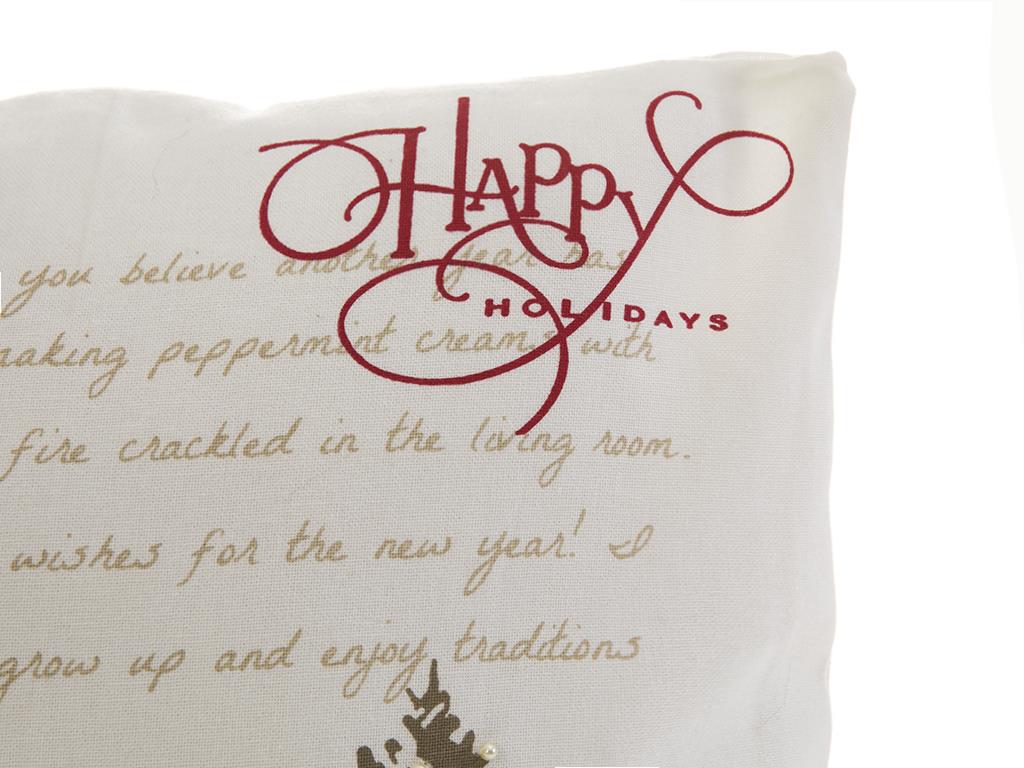 HAPPY
HOLIDAYS
you believe another year has
making peppermint creams with
fire crackled in the living room.
wishes for the new year! I
grow up and enjoy traditions